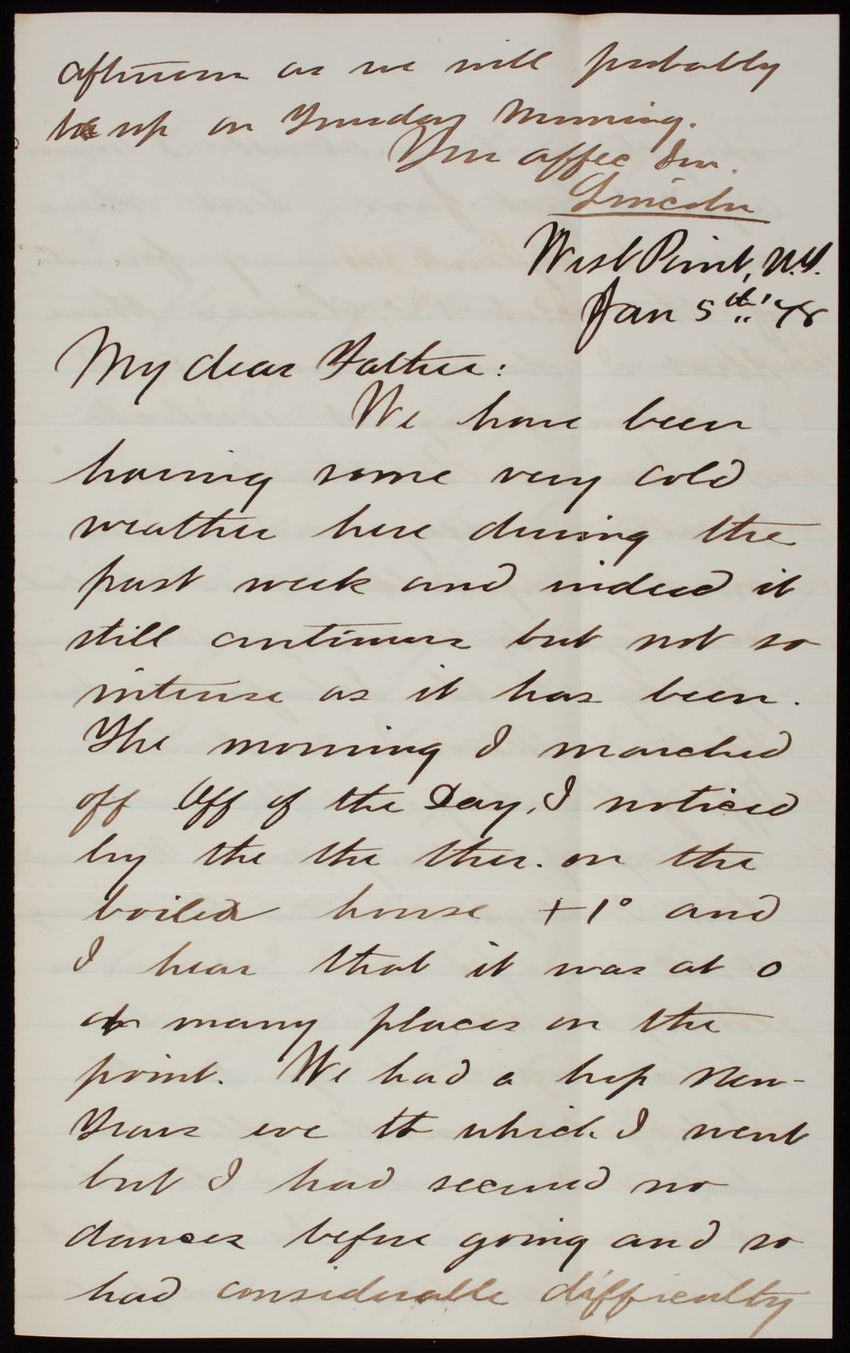 afternoon as we will probably
be up on Tuesday Morning.
Your affec Son.
Lincoln
West Point, N.Y.
Jan 5th '78
My dear Father:
We have been
having some very cold
weather here during the
past week and indeed it
still continues but not so
intense as it has been.
The morning I marched
off Off of the Day, I noticed
by the the ther. on the
boiled house +1° and
I hear that it was at 0
at many places on the
point. We had a hop New-
Years eve to which I went
but I had secured no
dances before going and so
had considerable difficulty